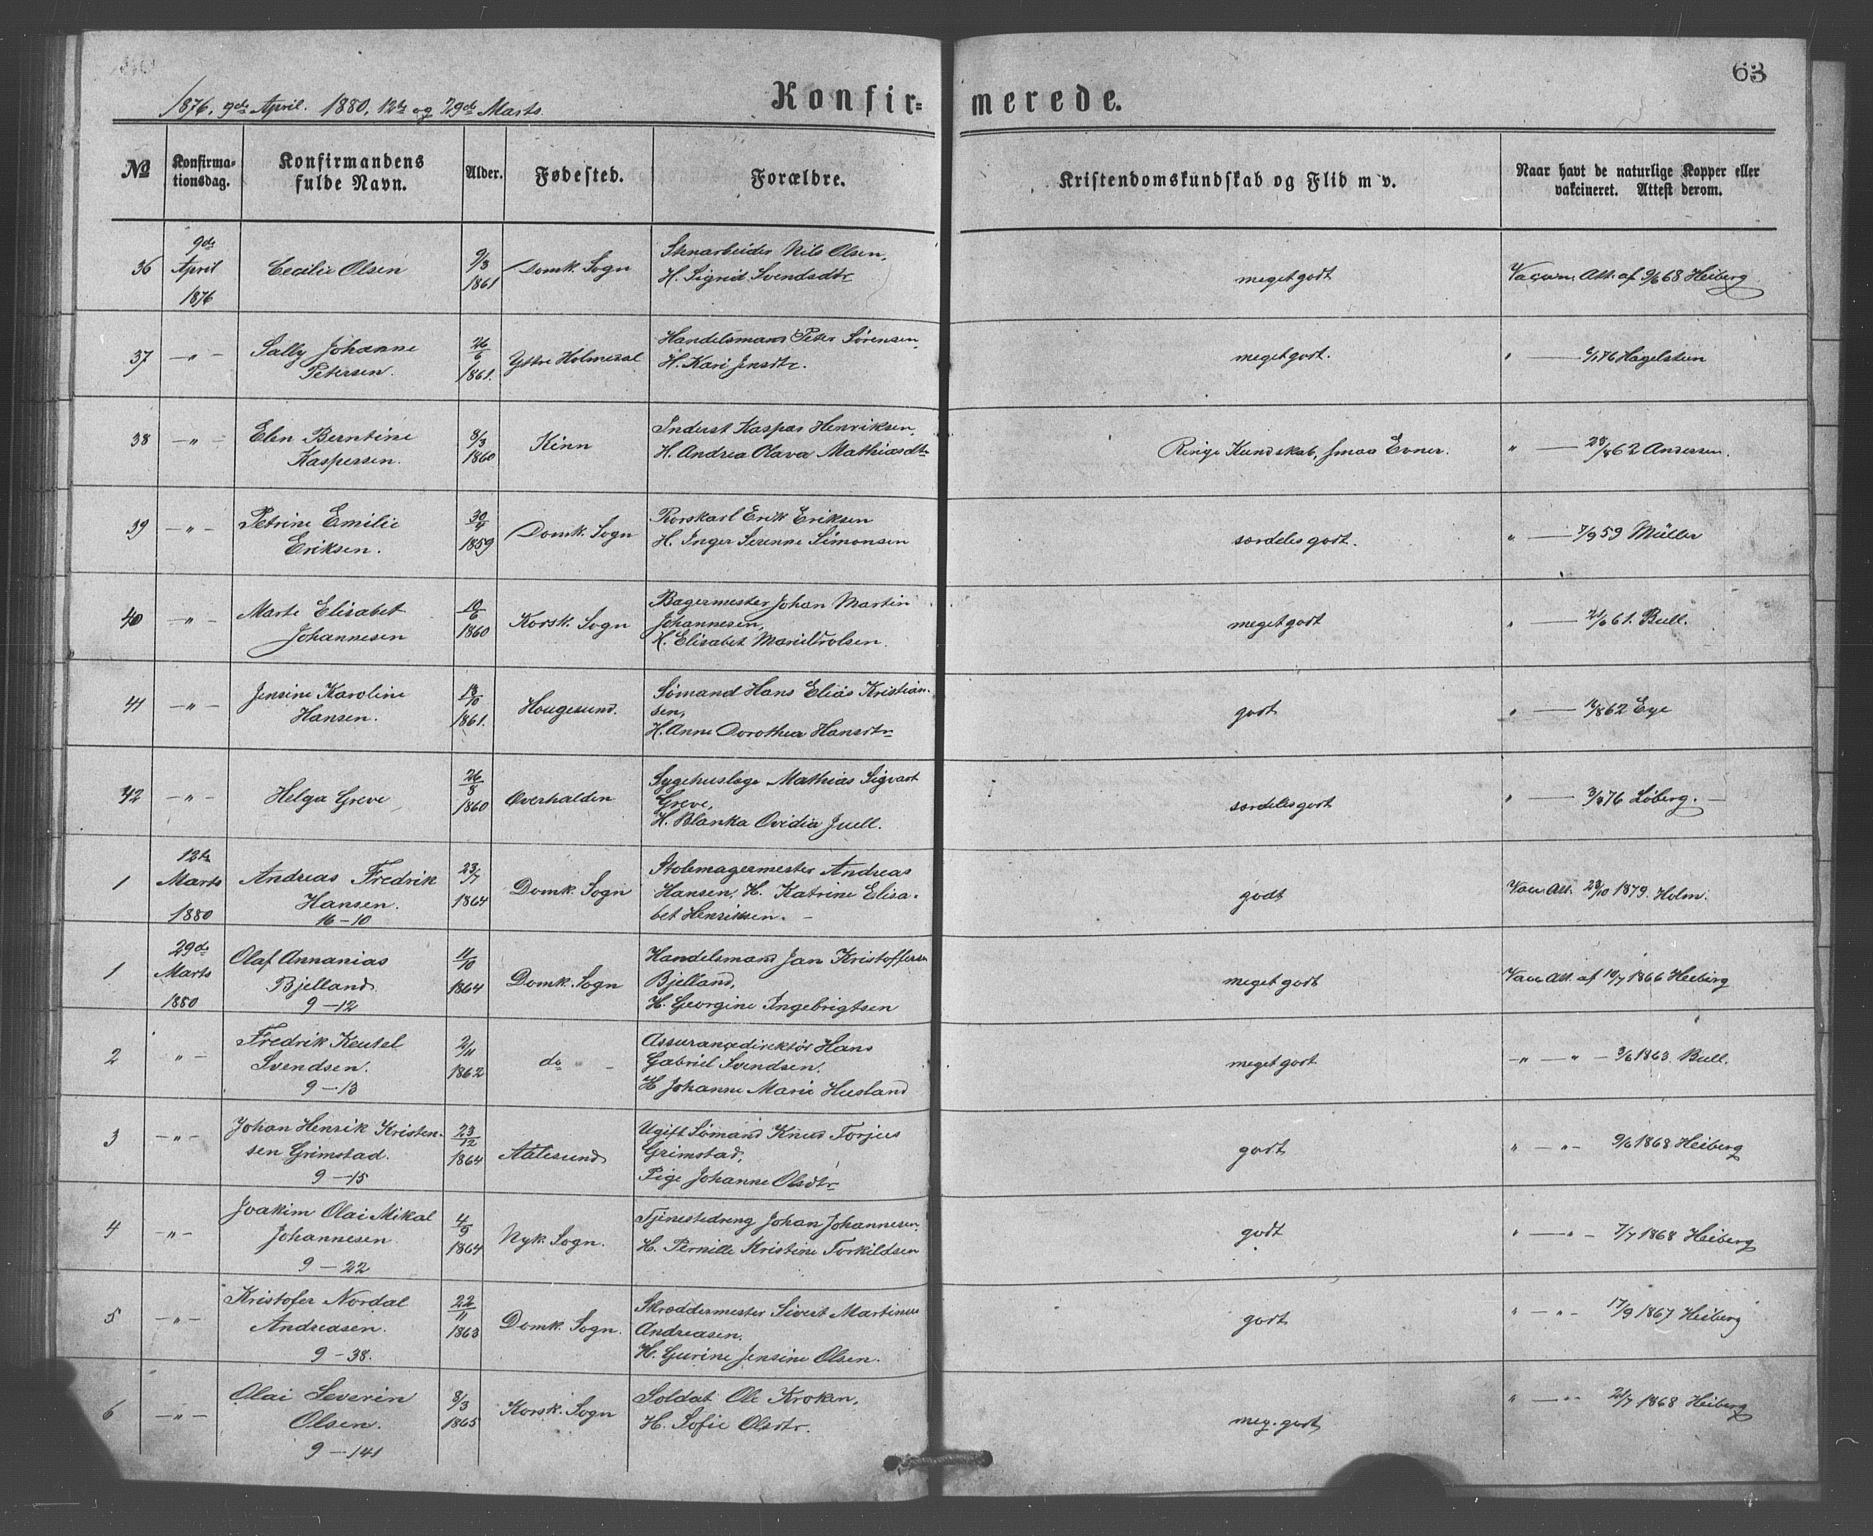 63
1876, 9de April. 1880, 12te og 29de Marts.
Konfir= merede.
No
Konfirma-
tionsdag.
Konfirmandens
fulde Navn.
Alder.
Fødested.
Forældre.
Kristendomskundskab og Flid m v.
Naar havt de naturlige Kopper eller
vakcineret. Attest derom.
36 9de April 1876 Cecilie Olsen 9/3 1861 Domk. Sogn
Stenarbeider Nils Olsen,
H. Sigrid Svendsdtr
meget godt
Vaccin. Att. af 9/6 68 Heiberg
37 — " — Sally Johanne
Petersen.
26/6 1861. Yttre Holmedal
Handelsmand Peter Sørensen,
H. Kari Jensdtr.
meget godt.
" — 76 Hagelsteen
38 — " — Elen Berntine
Kaspersen.
8/3 1860 Kinn
Inderst Kaspar Henriksen
H. Andrea Olava Mathiasdtr
Ringe Kundskab, smaa Evner.
" — 62 Andersen.
39 — " — Petrine Emilie
Eriksen.
30/4 1859 Domk. Sogn
Rorskarl Erik Eriksen
H. Inger Serenne Simonsen
særdeles godt.
" — 7/9 59 Müller
40 — " — Marte Elisabet
Johannesen
10/6 1860 Korsk. Sogn
Bagermester Johan Martin
Johannesen,
H. Elisabet Marie
meget godt
" — 21/6 61. Bull.
41 — " — Jensine Karoline
Hansen.
13/10 1861. Hougesund.
Sømand Hans Elias Kristian-
sen,
H. Anne Dorothea Hansdtr
godt
" — 62 Eye
42 — " — Helga Greve
26/8 1860 Overhalden
Sygehuslæge Mathias Sigvart
Greve,
H. Blanka Ovidia Juell.
særdeles godt
" — 76 Løberg. —
1 12te Marts 1880 Andreas Fredrik
Hansen.
16 — 10
23/7 1864 Domk. Sogn
Stolmagermester Andreas
Hansen, H. Katrine Elisa-
bet Henriksen. —
godt
Vacc Att. 23/10 1879. Holm.
1 29de Marts 1880 Olaf Annanias
Bjelland.
9 — 12
11/10 1864 Domk. Sogn
Handelsmand Jan Kristoffersen
Bjelland,
H. Georgine Ingebrigtsen
meget godt
Vacc Att. af 10/7 1866 Heiberg
2 " — Fredrik Keutel
Svendsen.
9 — 13
2/11 1862 do " —
Assurancedirektør Hans
Gabriel Svendsen,
H. Johanne Marie Husland
meget godt
— " — " — 3/6 1863 Bull.
3 — " — Johan Henrik Kristen-
sen Grimstad.
9 — 15
23/12 1864 Aalesund
Ugift Sømand Knud Torjus
Grimstad,
Pige Johanne Olsdtr
godt
" — " — 9/6 1868 Heiberg
4 — " — Joakim Olai Mikal
Johannesen
9 — 22
4/9 1864 Nyk. Sogn.
Tjenestedreng Johan Johannesen,
H. Pernille Kristine Torkildsen
godt
" — " — 7/7 1868 Heiberg
5 — " — Kristofer Nordal
Andreasen.
9 — 38.
22/11 1863 Domk. Sogn.
Skræddermester Sivert Martinus
Andreasen.
H. Gurine Jensine Olsen.
godt
" — " — 17/9 1867 Heiberg
6 — " — Olai Severin
Olsen.
9 — 141
8/3 1865 Korsk. Sogn
Soldat Ole Kroken,
H. Sofie Olsdtr.
meg. godt
" — " — 21/7 1868 Heiberg